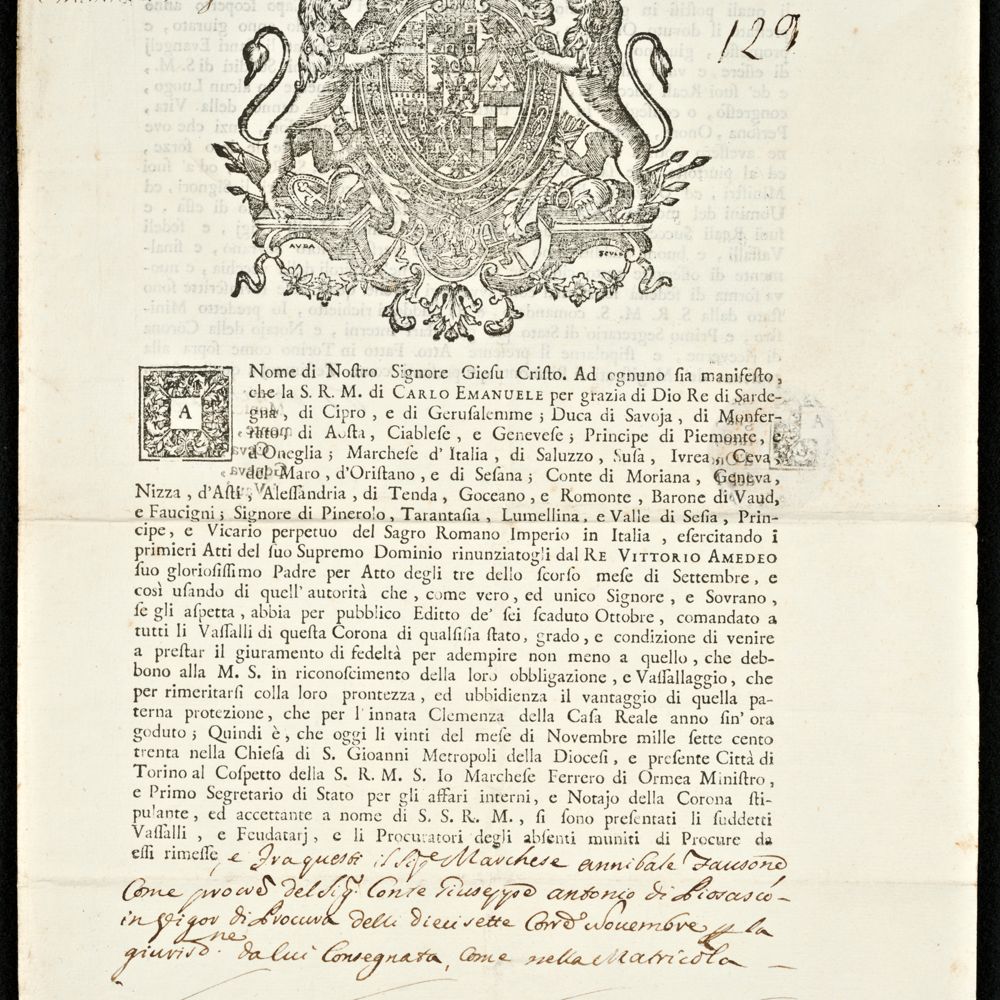 129
AUDA
SCULP
A
Nome di Nostro Signore Giesu Cristo. Ad ognuno ſia manifeſto,
che la S. R. M. di CARLO EMANUELE per grazia di Dio Re di Sarde-
gna, di Cipro, e di Geruſalemme; Duca di Savoja, di Monfer-
rato, di Aoſta, Ciableſe, e Geneveſe; Principe di Piemonte, e
d'Oneglia; Marcheſe d'Italia, di Saluzzo, Suſa, Ivrea, Ceva,
del Maro, d'Oriſtano, e di Seſana; Conte di Moriana, Geneva,
Nizza, d'Aſti, Aleſſandria, di Tenda, Goceano, e Romonte, Barone di Vaud,
e Faucigni; Signore di Pinerolo, Tarantaſia, Lumellina, e Valle di Seſia, Prin-
cipe, e Vicario perpetuo del Sagro Romano Imperio in Italia, eſercitando i
primieri Atti del ſuo Supremo Dominio rinunziatogli dal RE VITTORIO AMEDEO
ſuo glorioſiſſimo Padre per Atto degli tre dello ſcorſo meſe di Settembre, e
così uſando di quell'autorità che, come vero, ed unico Signore, e Sovrano,
ſe gli aſpetta, abbia per pubblico Editto de' ſei ſcaduto Ottobre, comandato a
tutti li Vaſſalli di queſta Corona di qualſiſia ſtato, grado, e condizione di venire
a preſtar il giuramento di fedeltà per adempire non meno a quello, che deb-
bono alla M. S. in riconoſcimento della loro obbligazione, e Vaſſallaggio, che
per rimeritarſi colla loro prontezza, ed ubbidienza il vantaggio di quella pa-
terna protezione, che per l'innata Clemenza della Caſa Reale anno ſin' ora
goduto; Quindi è, che oggi li vinti del meſe di Novembre mille ſette cento
trenta nella Chieſa di S. Gioanni Metropoli della Dioceſi, e preſente Città di
Torino al Coſpetto della S. R. M. S. Io Marcheſe Ferrero di Ormea Miniſtro,
e Primo Segretario di Stato per gli affari interni, e Notajo della Corona ſti-
pulante, ed accettante a nome di S. S. R. M., ſi sono preſentati li ſuddetti
Vaſſalli, e Feudatarj, e li Procuratori degli abſenti muniti di Procure da
eſſi rimeſſe, e Fra questi il Sigr Marchese annibale
Come procre del Sigr Conte Giuseppe antonio di Piosasco
in vigor di Procura delli diecisette Corre Novembre la
giurisdne da lui Consegnata, Come nella Matricola